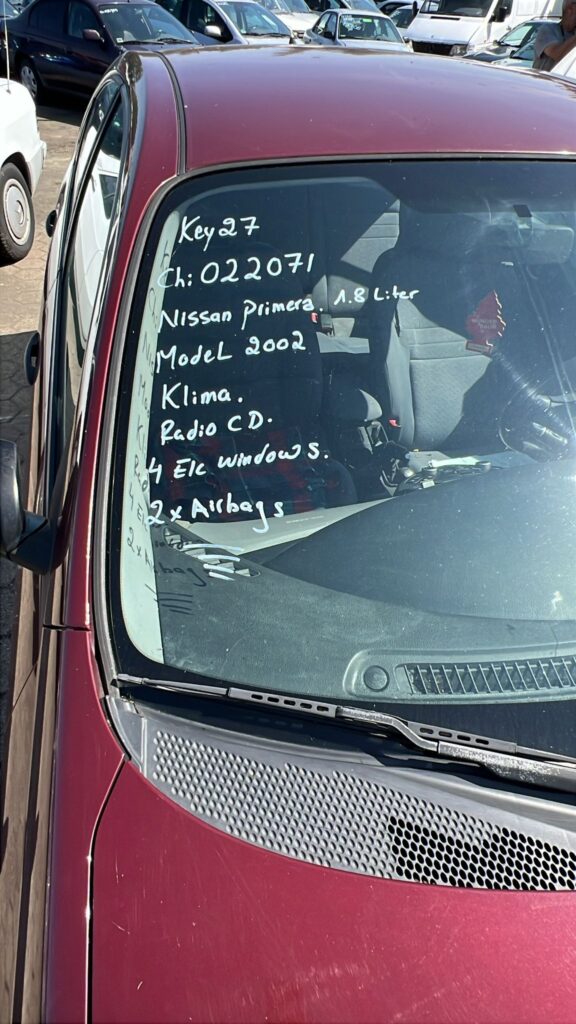 Key 27
Ch: 022071
Nissan Primera. 1.8 Liter
Model 2002
Klima.
Radio CD.
4 Elc windows.
2 x Airbags